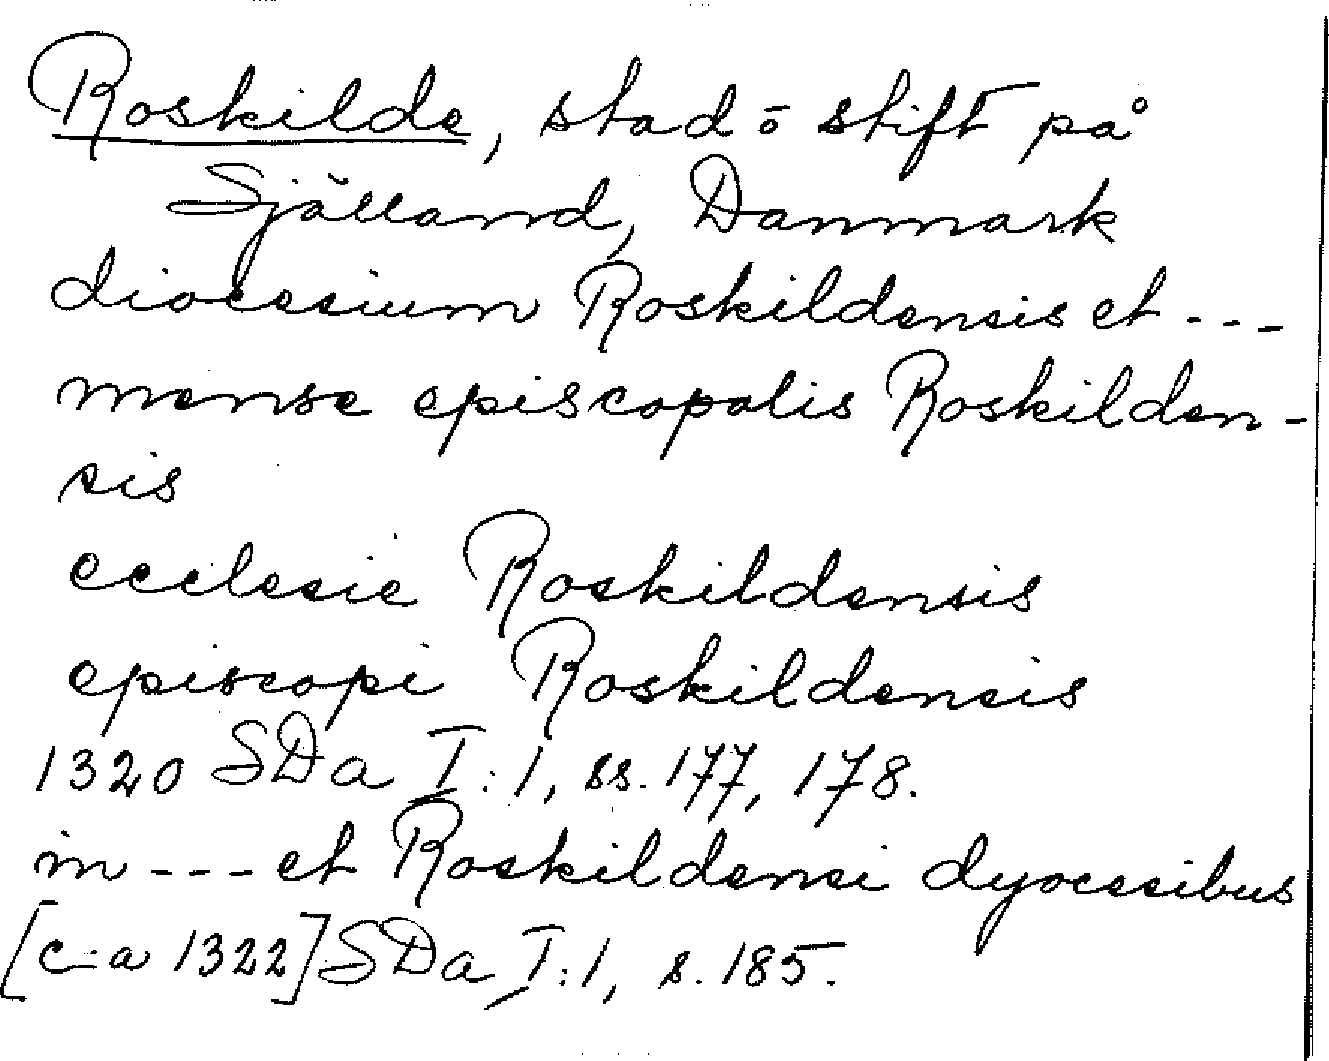 Roskilde, stad ō stift på
Själland, Danmark
diocesium Roskildensis et ---
mense episcopalis Roskilden-
sis
ecclesie Roskildensis
episcopi Roskildensis
1320 SDa I:1, ss. 177, 178.
in --- et Roskildensi dyocesibus
[c:a 1322] SDa I:1, s. 185.